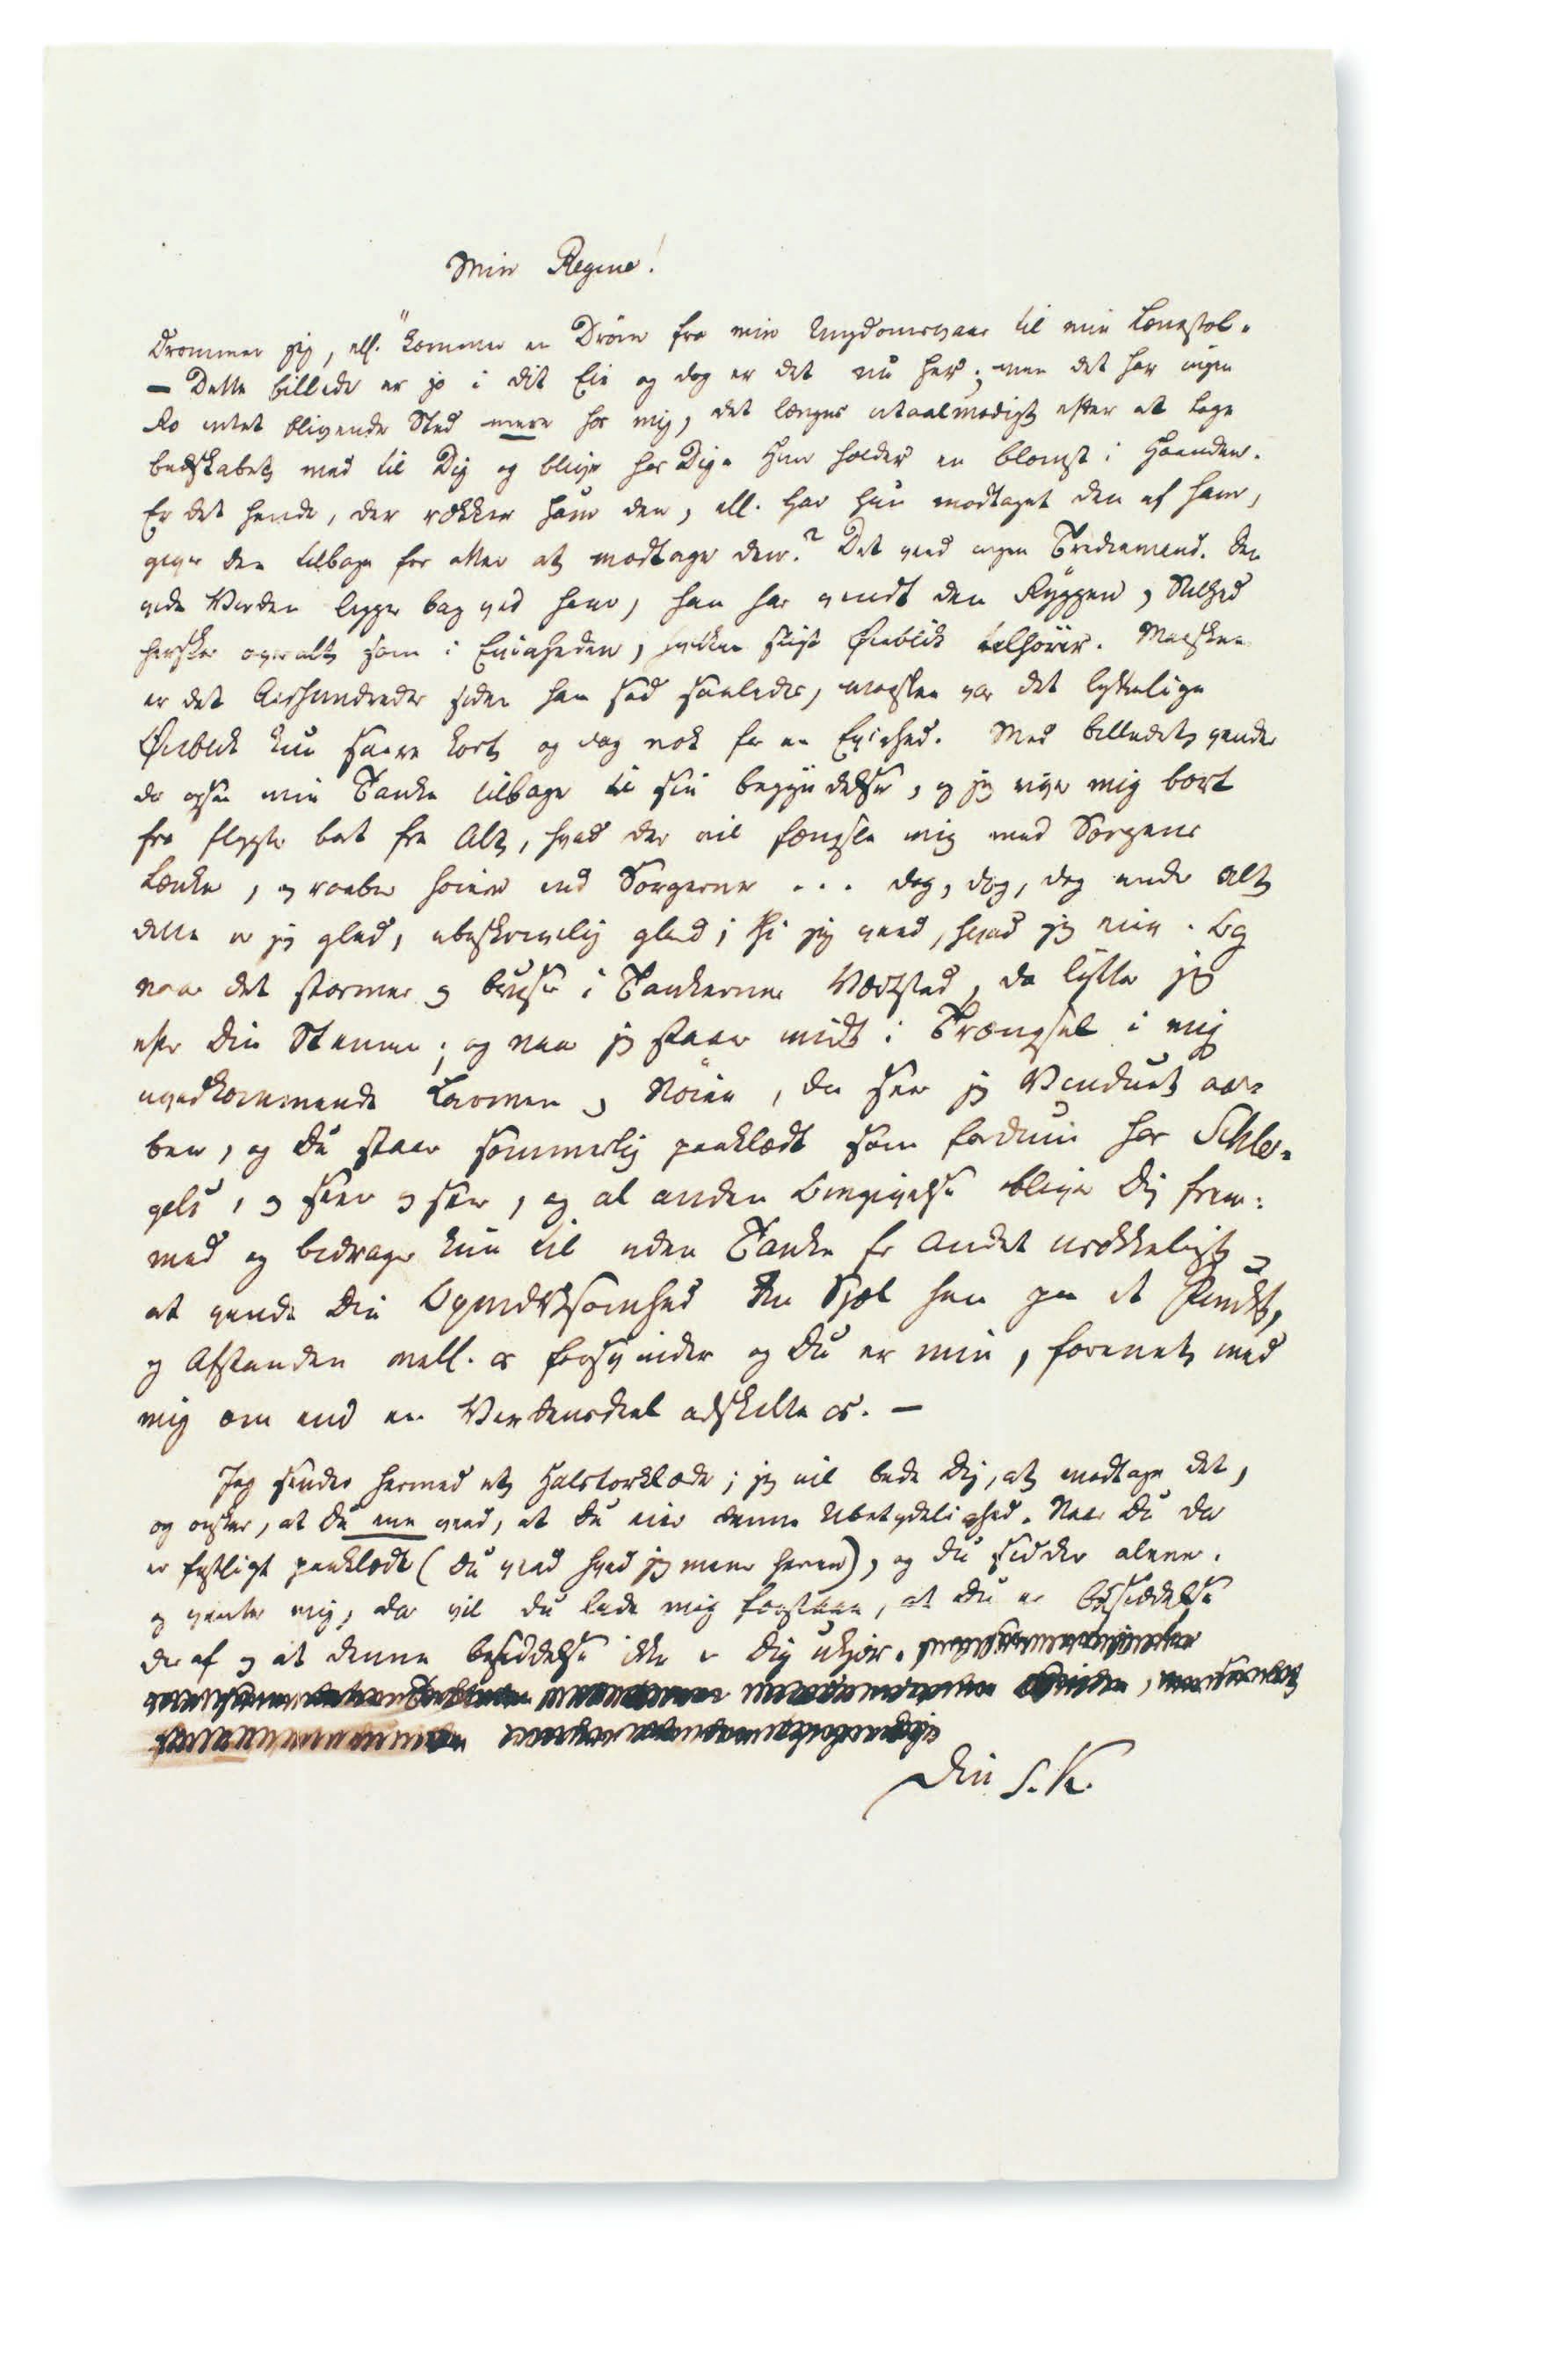 Min Regine!
Drømmer jeg, ell. "kommer en Drøm fra min Ungdomsvaar til min Lænestol"
— Dette Billede er jo i dit Eie og dog er det nu her; men det har ingen
Ro intet blivende Sted mere hos mig, det længes utaalmodigt efter at tage
Budskabet med til Dig og blive hos Dig. Han holder en Blomst i Haanden.
Er det hende, der rækker ham den, ell. har hun modtaget den af ham,
giver den tilbage for atter at modtage den? Det veed ingen Trediemand. Den
vide Verden ligger bag ved ham, han har vendt den Ryggen, Stilhed
hersker overalt som i Evigheden, hvilken sligt Øieblik tilhører. Maaskee
er det Aarhundreder siden han sad saaledes, maaskee var det lykkelige
Øieblik kun saare kort og dog nok for en Evighed. Med Billedet vender
da ogsaa min Tanke tilbage til sin Begyndelse, og jeg river mig bort
fra flygter bort fra Alt, hvad der vil fængsle mig med Sorgens
Lænker, og raaber høiere end Sorgerne ... dog, dog, dog under alt
dette er jeg glad, ubeskrivelig glad; thi jeg veed, hvad jeg eier. Og
naar det stormer og bruser i Tankernes Værksted, da lytter jeg
efter Din Stemme; og naar jeg staaer midt i Trængsel i mig
uvedkommende Larmen og Støien, da seer jeg Vinduet aa-
ben, og Du staaer sommerlig paaklædt som fordum hos Schle-
gels, og seer og seer, og al anden Omgivelse bliver Dig frem-
med og bidrager kun til uden Tanke for Andet urokkeligt
at vende Din Opmærksomhed Din Sjæl hen paa et Punkt,
og Afstanden mell. os forsvinder og Du er min, forenet med
mig om end en Verdensdeel adskilte os. —
Jeg sender hermed et Halstørklæde; jeg vil bede Dig, at modtage det,
og ønsker, at Du ene veed, at Du eier denne Ubetydelighed. Naar Du da
er festligt paaklædt (Du veed hvad jeg mener herved), og Du sidder alene
og venter mig, da vil Du lade mig forstaae, at Du er i Besiddelse
deraf og at denne Besiddelse ikke er Dig ukjær.
Din S. K.